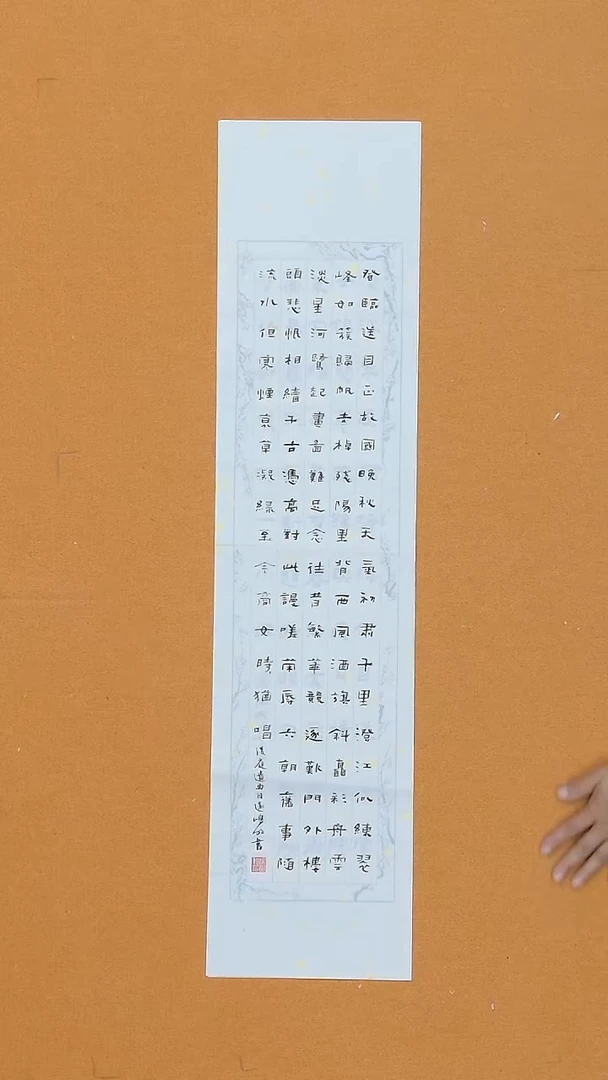 登臨送目正故國晚秋天氣初肅千里澄江似練翠
峰如簇歸帆去棹殘陽里背西風酒旗斜矗彩舟雲
淡星河鷺起畫圖難足念往昔繁華競逐歎門外樓
頭悲恨相續千古憑高對此謾嗟榮辱六朝舊事隨
流水但寒煙衰草凝綠至今商女時猶唱後庭遺曲書